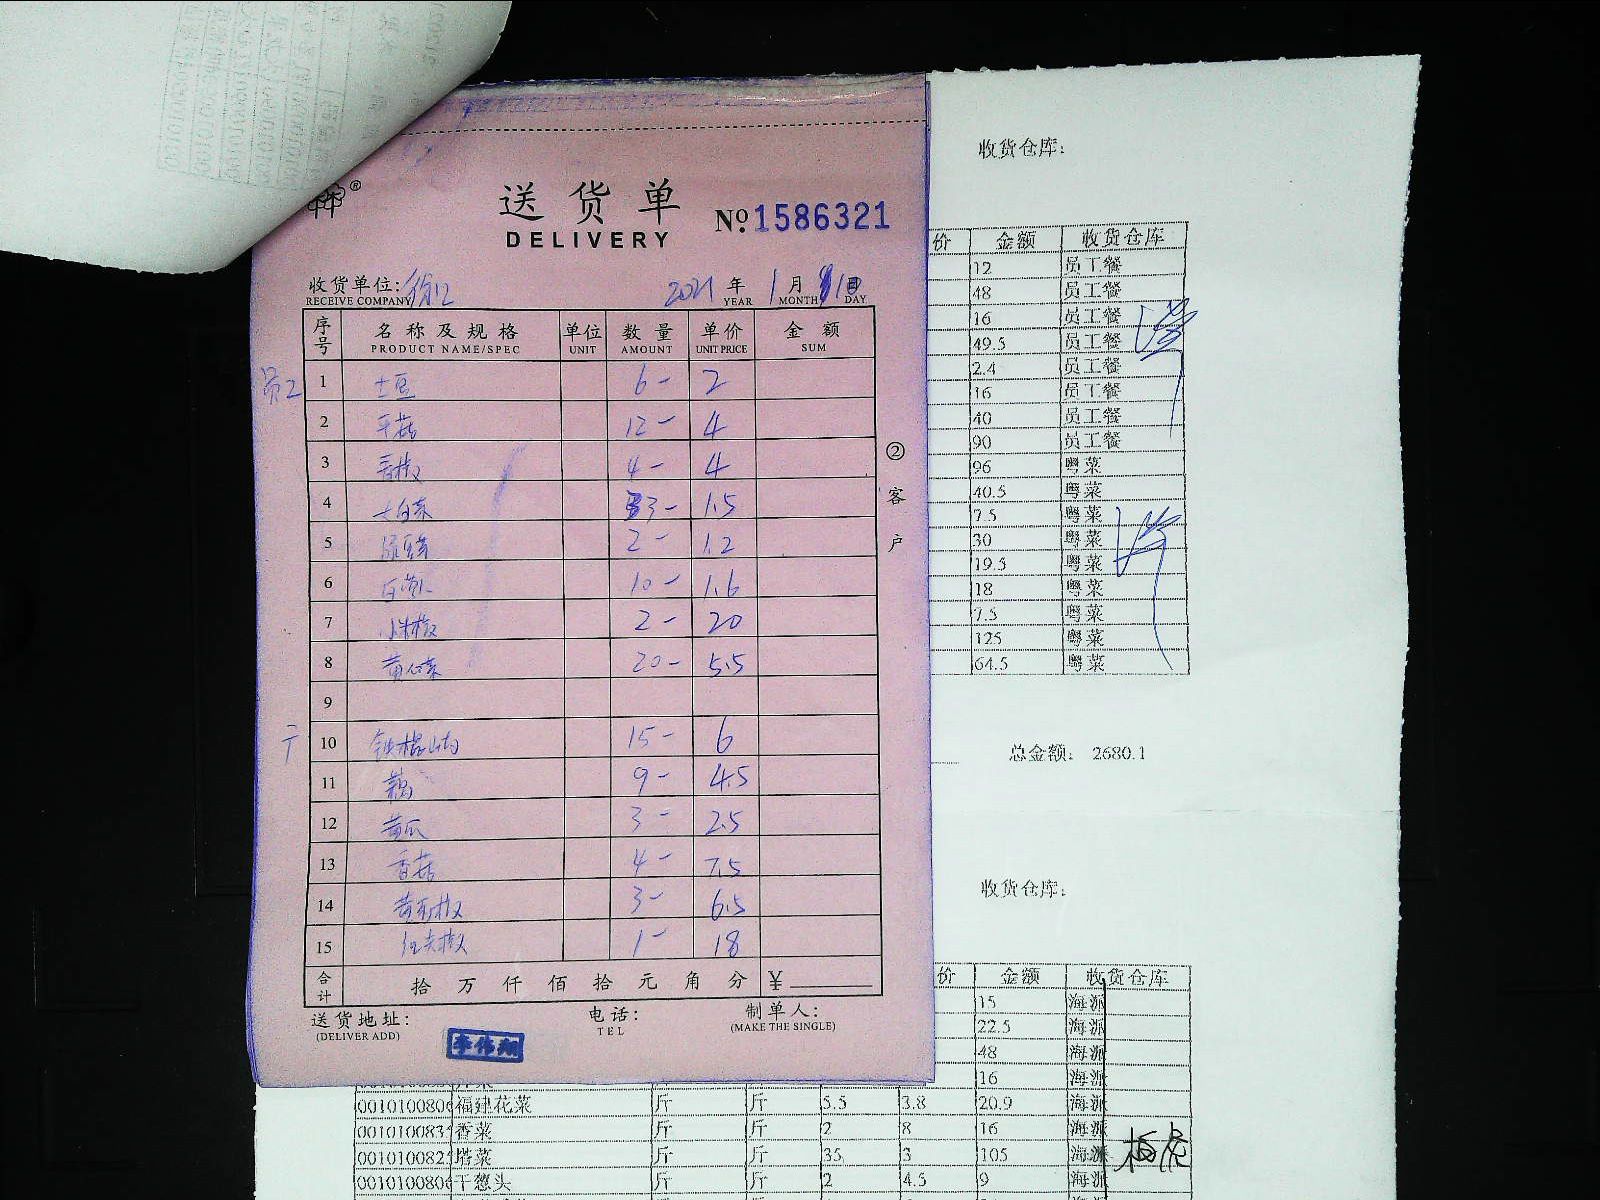 送货单
DELIVERY
№ 1586321
收货单位:
RECEIVE COMPANY
2021 年 1 月 日
YEAR MONTH DAY
序号 名称及规格 单位 数量 单价 金额
PRODUCT NAME/SPEC UNIT AMOUNT UNIT PRICE SUM
员工
1 土豆 6- 2
2 平菇 12- 4
3 青椒 4- 4
4 大白菜 33- 1.5
5 绿豆芽 2- 1.2
6 白萝卜 10- 1.6
7 小米椒 2- 20
8 黄心菜 20- 5.5
9
10 铁棍山药 15- 6
11 藕 9- 4.5
12 黄瓜 3- 2.5
13 香菇 4- 7.5
14 3- 6.5
15 红尖椒 1- 18
合计 拾 万 仟 佰 拾 元 角 分 ¥
送货地址:
(DELIVER ADD)
电话:
TEL
制单人:
(MAKE THE SINGLE)
李伟翔
②客户
收货仓库:
价 金额 收货仓库
12 员工餐
48 员工餐
16 员工餐
49.5 员工餐
2.4 员工餐
16 员工餐
40 员工餐
90 员工餐
96 粤菜
40.5 粤菜
7.5 粤菜
30 粤菜
19.5 粤菜
18 粤菜
7.5 粤菜
125 粤菜
64.5 粤菜
总金额: 2680.1
收货仓库:
价 金额 收货仓库
15 海派
22.5 海派
48 海派
16 海派
0010100806 福建花菜 斤 斤 5.5 3.8 20.9 海派
001010083 香菜 斤 斤 2 8 16 海派
001010082 塔菜 斤 斤 35 3 105 海派
001010080 干葱头 斤 斤 2 4.5 9 海派